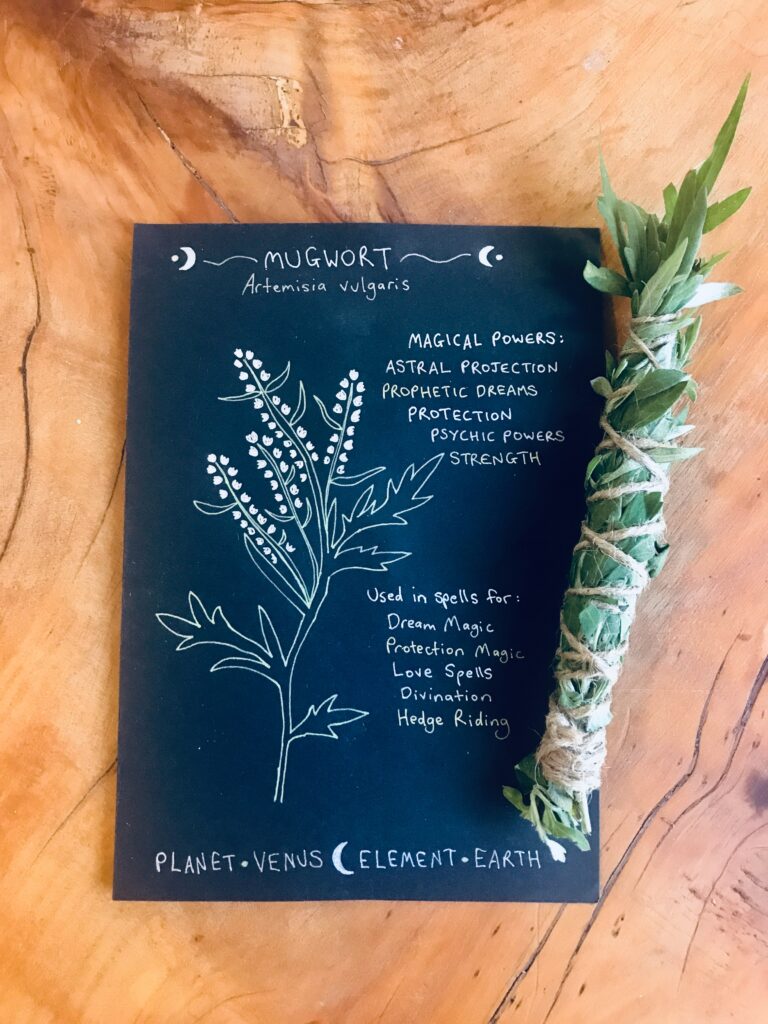 MUGWORT
Artemisia vulgaris
MAGICAL POWERS:
ASTRAL PROJECTION
PROPHETIC DREAMS
PROTECTION
PSYCHIC POWERS
STRENGTH
Used in spells for:
Dream Magic
Protection Magic
Love Spells
Divination
Hedge Riding
PLANET • VENUS ELEMENT • EARTH